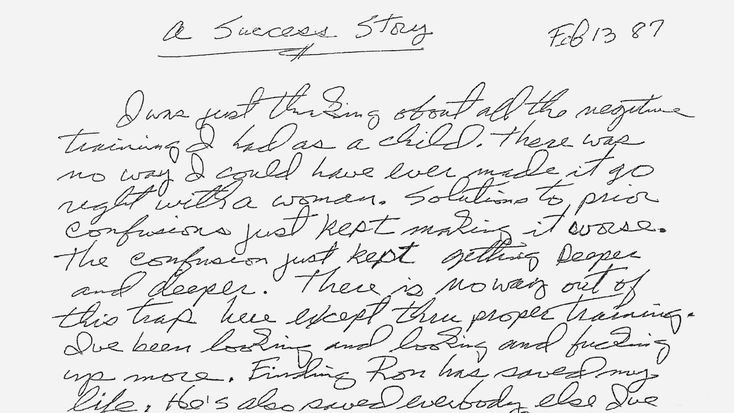 A Success Story
Feb 13 87
I was just thinking about all the negative
training I had as a child. There was
no way I could have ever made it go
right with a woman. Solutions to prior
confusions just kept making it worse.
The confusion just kept getting Deeper
and deeper. There is no way out of
this trap here except thru proper training.
I've been looking and looking and fucking
up more. Finding Ron has saved my
life. He's also saved everybody else I've